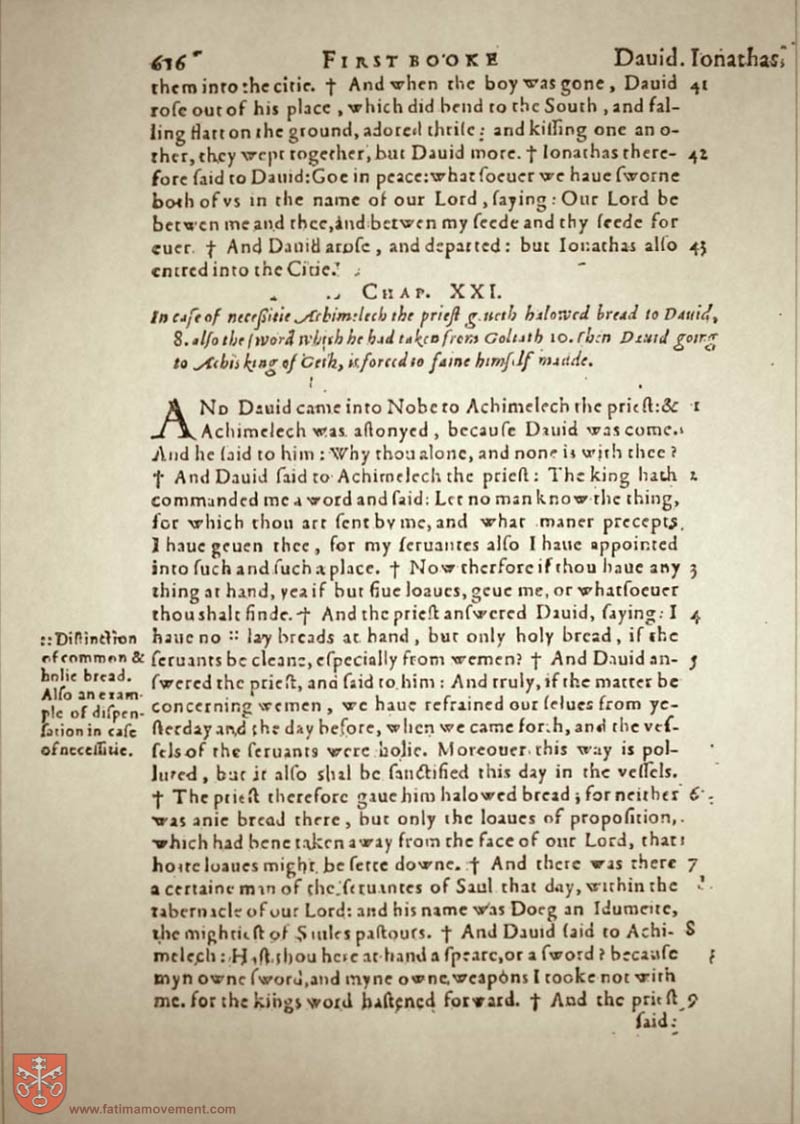 616 FIRST BOOKE Dauid. Ionathas.
them into the citie. † And when the boy was gone, Dauid 41
roſe out of his place, which did bend to the South, and fal-
ling flatt on the ground, adored thriſe: and kiſſing one an o-
ther, they wept together, but Dauid more. † Ionathas there- 42
fore ſaid to Dauid: Goe in peace: whatſoeuer we haue ſworne
both of vs in the name of our Lord, ſaying: Our Lord be
betwen me and thee, and betwen my ſeede and thy ſeede for
euer. † And Dauid aroſe, and departed: but Ionathas alſo 43
entred into the Citie.
CHAP. XXI.
In caſe of neceſsitie Achimelech the prieſt geueth halowed bread to Dauid,
8. alſo the ſword which he had taken from Goliath 10. then Dauid going
to Achis king of Geth, is forced to faine himſelf madde.
AND Dauid came into Nobe to Achimelech the prieſt: & 1
Achimelech was aſtonyed, becauſe Dauid was come.
And he ſaid to him: Why thou alone, and none is with thee?
† And Dauid ſaid to Achimelech the prieſt: The king hath 2
commanded me a word and ſaid: Let no man know the thing,
for which thou art ſent by me, and what maner precepts
I haue geuen thee, for my ſeruantes alſo I haue appointed
into ſuch and ſuch a place. † Now therfore if thou haue any 3
thing at hand, yea if but fiue loaues, geue me, or whatſoeuer
thou shalt finde. † And the prieſt anſwered Dauid, ſaying: I 4
haue no :: lay breads at hand, but only holy bread, if the
ſeruants be cleane, eſpecially from wemen? † And Dauid an- 5
ſwered the prieſt, and ſaid to him: And truly, if the matter be
concerning wemen, we haue refrained our ſelues from ye-
ſterday and the day before, when we came forth, and the veſ-
ſels of the ſeruants were holie. Moreouer this way is pol-
luted, but it alſo shal be ſanctified this day in the veſſels.
† The prieſt therefore gaue him halowed bread; for neither 6
was anie bread there, but only the loaues of propoſition,
which had bene taken away from the face of our Lord, that
hotte loaues might be ſette downe. † And there was there 7
a certaine man of the ſeruantes of Saul that day, within the
tabernacle of our Lord: and his name was Doeg an Idumeite,
the mightieſt of Saules paſtours. † And Dauid ſaid to Achi- 8
melech: Haſt thou here at hand a ſpeare, or a ſword? becauſe
myn owne ſword, and myne owne weapons I tooke not with
me. for the kings word haſtened forward. † And the prieſt 9
ſaid:
:: Diſtinction
of common &
holie bread.
Alſo an exam-
ple of diſpen-
ſation in caſe
of neceſſitie.
www.fatimamovement.com